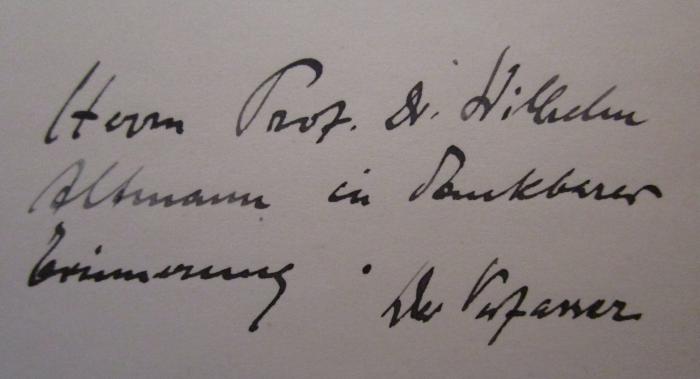 Herrn Prof. Dr. Wilhelm
Altmann in dankbarer
Erinnerung.
Der Verfasser